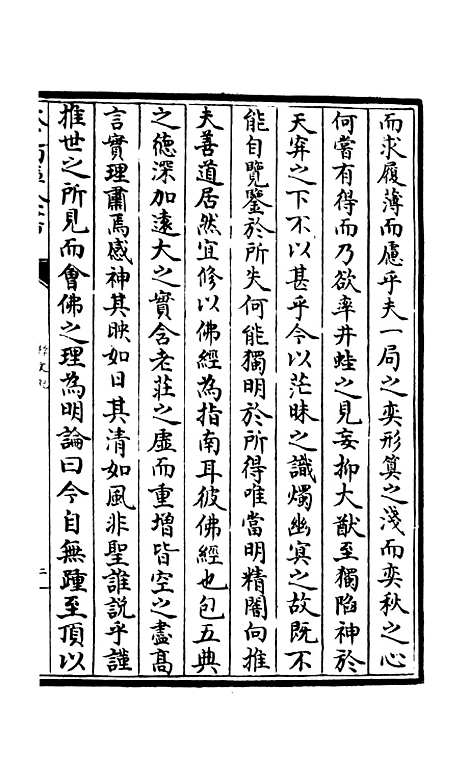 而求履薄而慮乎夫一局之奕形筭之淺而奕秋之心
何嘗有得而乃欲率井蛙之見妄抑大猷至獨陷神於
天穽之下不以甚乎今以茫昧之識燭幽冥之故既不
能自覽鑒於所失何能獨明於所得唯當明精闇向推
夫善道居然宜修以佛經為指南耳彼佛經也包五典
之德深加遠大之實含老莊之虛而重增皆空之盡高
言實理肅焉感神其映如日其清如風非聖誰說乎謹
推世之所見而會佛之理為明論曰今自無踵至頂以
釋文紀